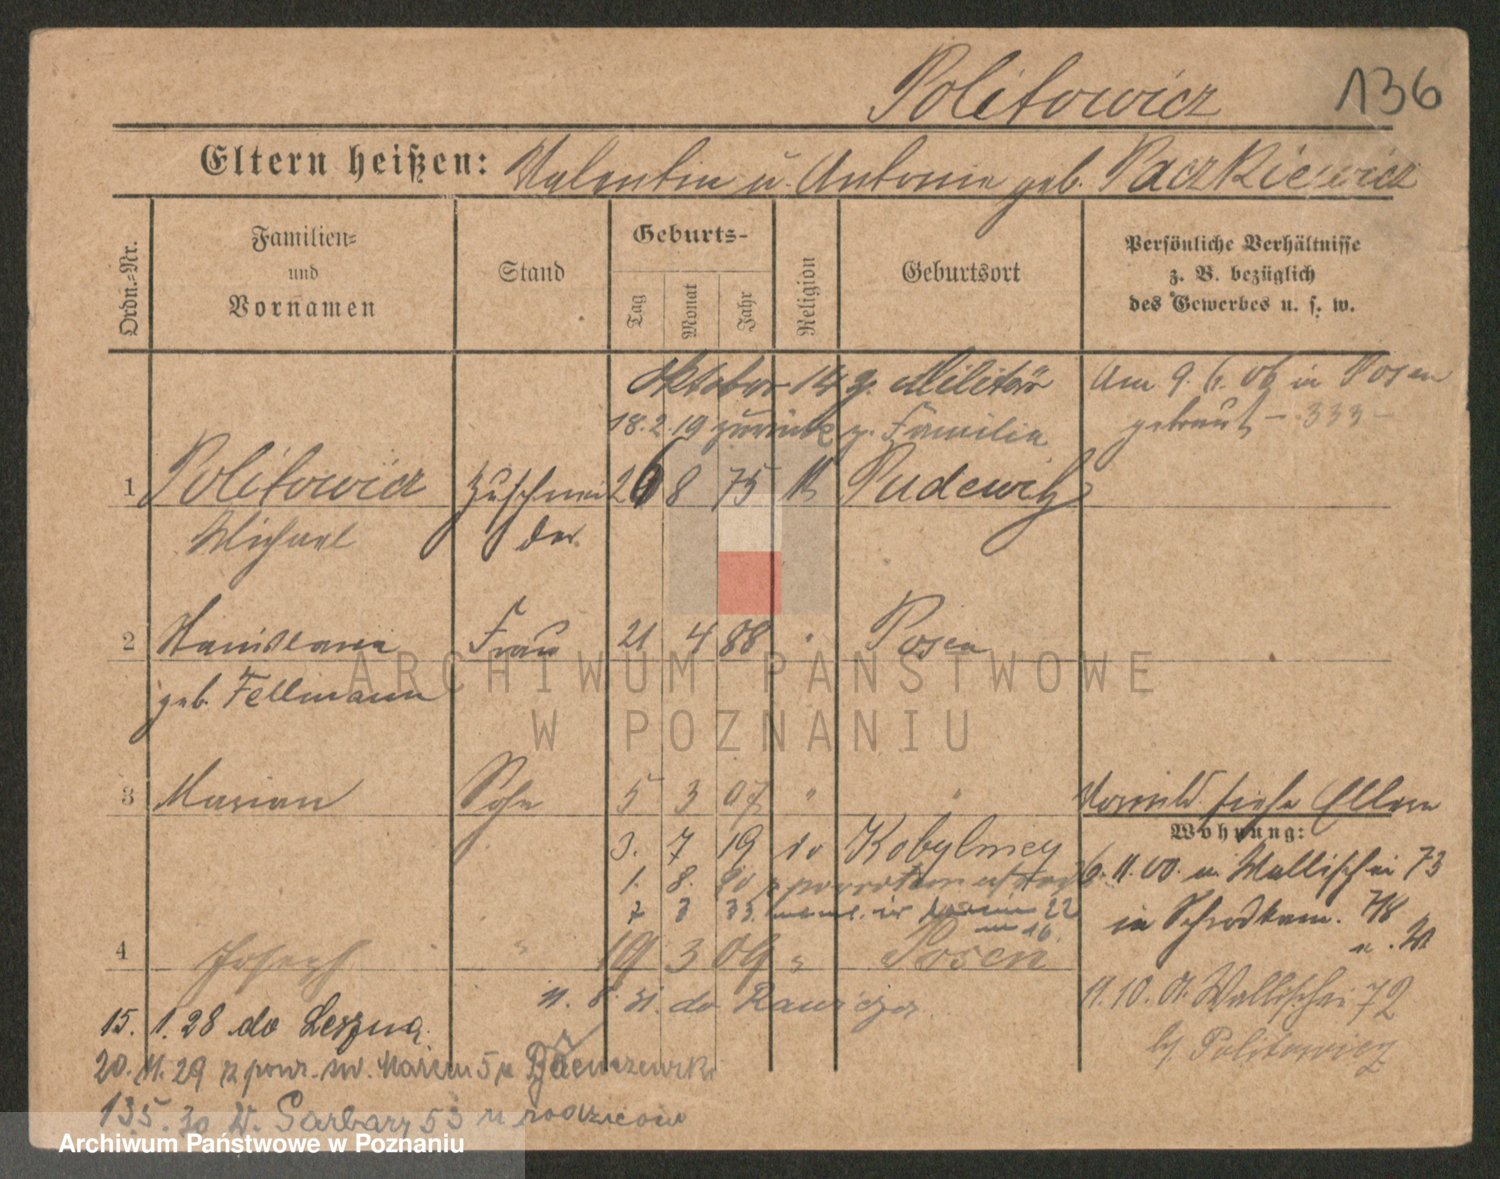 Politowicz 136
Eltern heißen: Valentin u. Antonie geb. Paczkiewicz
Ordn.-Nr. Familien- und Vornamen Stand Geburts- Tag Monat Jahr Religion Geburtsort Persönliche Verhältnisse z. B. bezüglich des Gewerbes u. s. w.
Oktober 14 z. Militär
Am 9. 6. 06 in Posen
18.2.19 zurück z. Familie
getraut - 333 -
1 Politowicz Zuschnei 26 8 75 K Pudewitz
Michael der
2 Stanislawa Frau 21 4 88 " Posen
geb. Fellmann
ARCHIWUM PAŃSTWOWE
W POZNANIU
3 Marian Sohn 5 3 07 " "
siehe Eltern
Wohnung:
3. 7 19 do Kobylnicy
6. 11. 00. Wallischei 73
1. 8. 20 z
7 3 33. 22
in Schrodkam. 78
16
4 Joseph " 19 3 09 " Posen
11. 8. 21. do Rawicza
11. 10. 01. Wallischei 72
15. 1. 28 do Leszna.
b/ Politowicz
20. 11. 29 z pow. św. Marcin 5
13 5. 30 W. Garbary 53 u rodziców
Archiwum Państwowe w Poznaniu